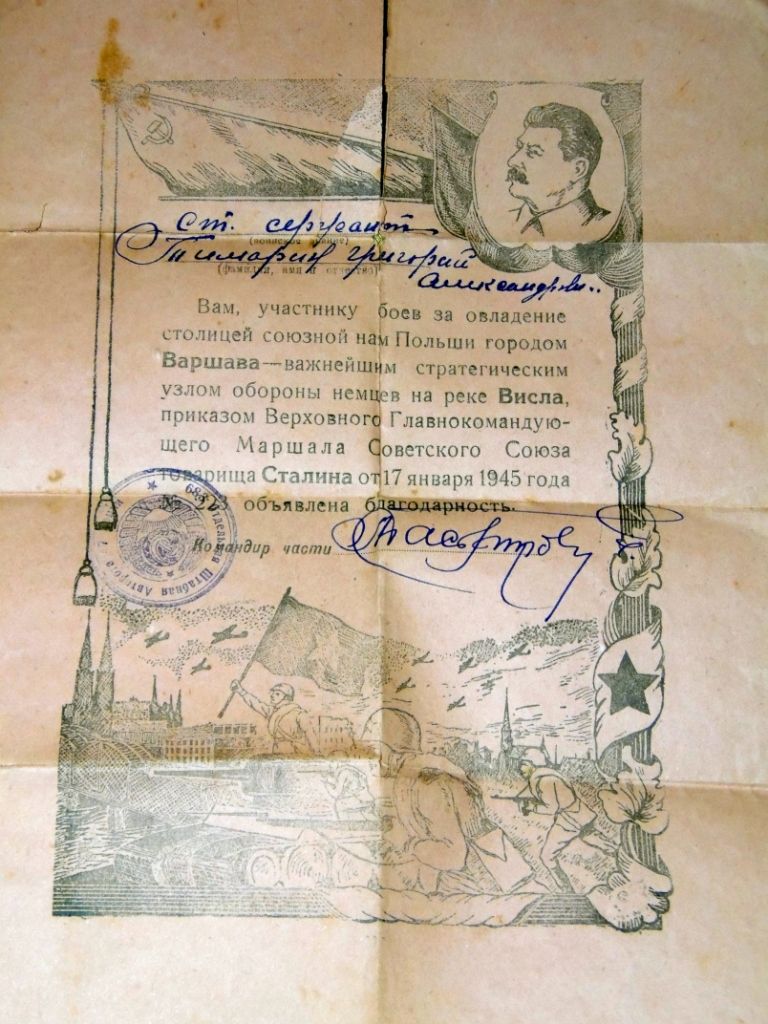 Ст. сержант
(воинское звание)
Тимарин Григорий
(фамилия, имя и отчество)
Александрови..
Вам, участнику боев за овладение
столицей союзной нам Польши городом
Варшава—важнейшим стратегическим
узлом обороны немцев на реке Висла,
приказом Верховного Главнокомандую-
щего Маршала Советского Союза
товарища Сталина от 17 января 1945 года
№ 22 объявлена благодарность.
Командир части
683 Отдельная Штабная